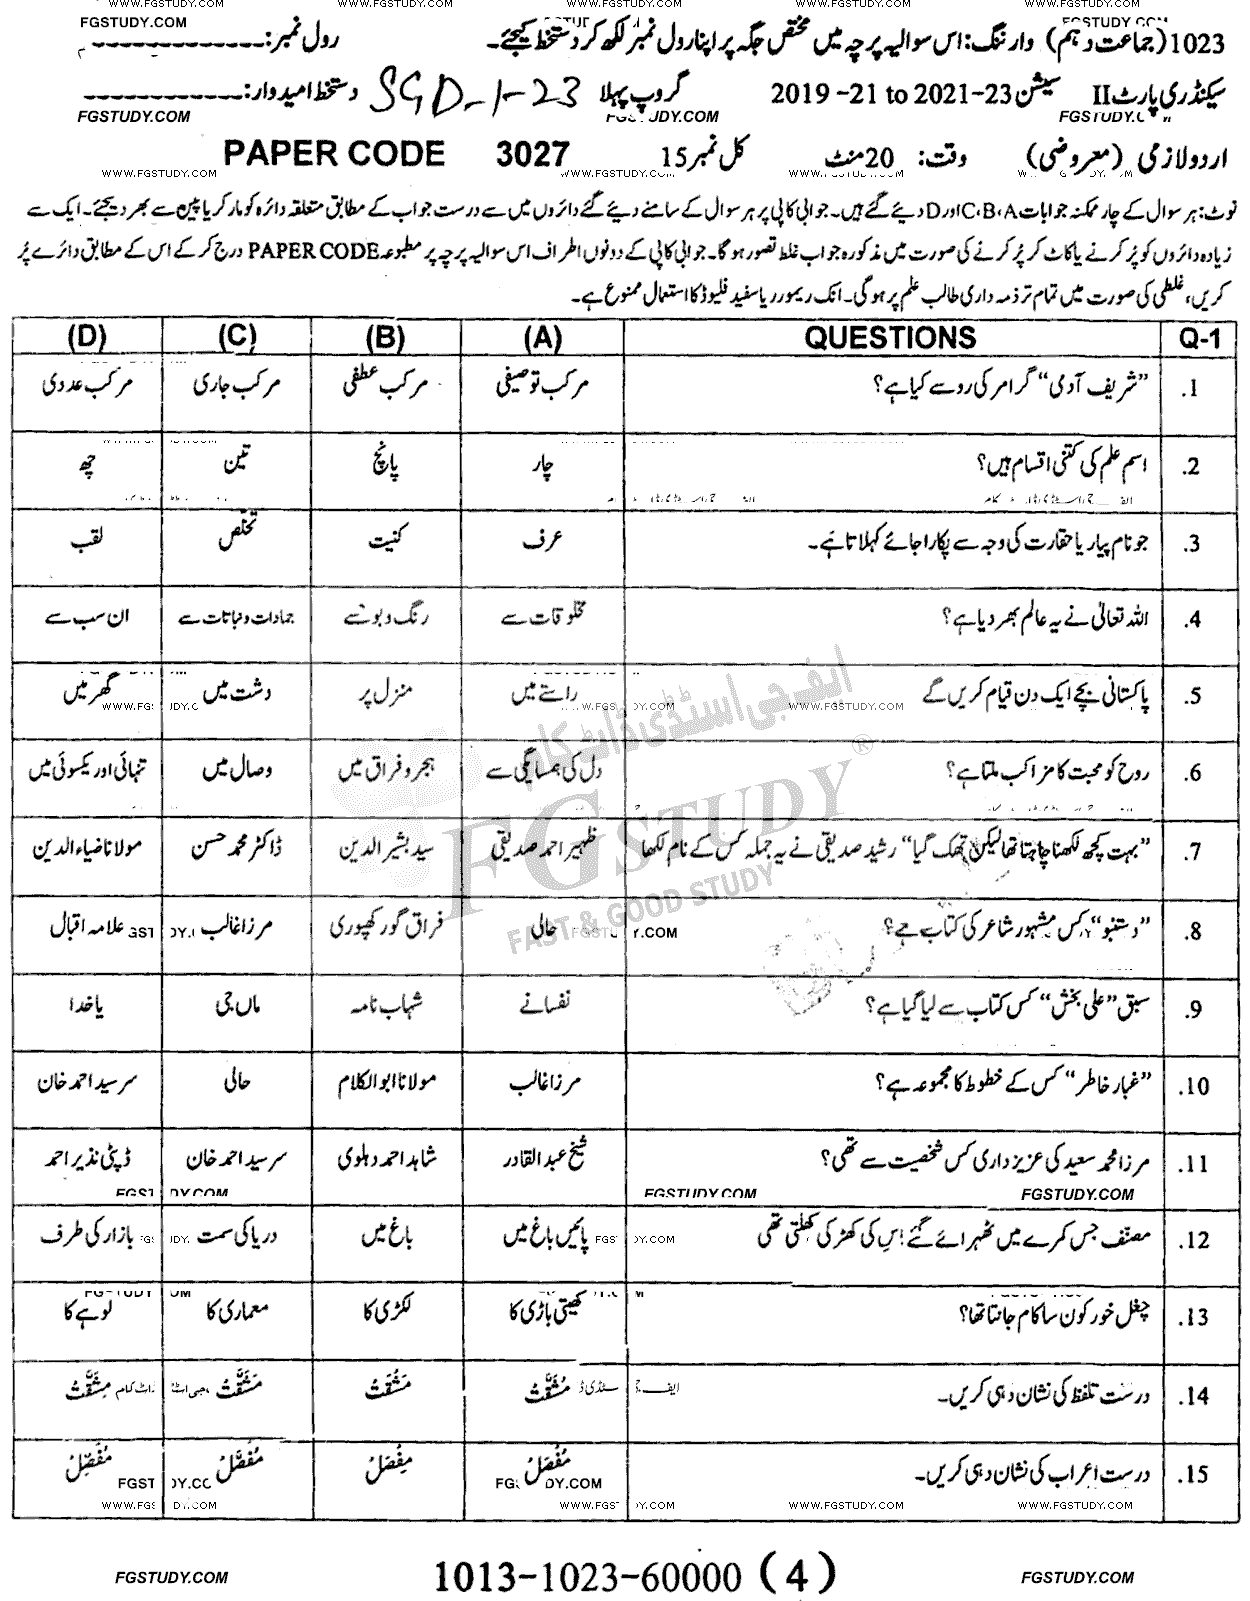 WWW.FGSTUDY.COM WWW.FGSTUDY.COM WWW.FGSTUDY.COM WWW.FGSTUDY.COM
FGSTUDY.COM FGSTUDY.COM
1023 (جماعت دہم) وارننگ: اس سوالیہ پرچہ میں مختص جگہ پر اپنا رول نمبر لکھ کر دستخط کیجئے۔ رول نمبر: ------------
سیکنڈری پارٹ II سیشن 2019 -21 to 2021-23 گروپ پہلا SGD-1-23 دستخط امیدوار: ------------
FGSTUDY.COM FGSTUDY.COM
اردو لازمی (معروضی) وقت: 20 منٹ کل نمبر 15 PAPER CODE 3027
WWW.FGSTUDY.COM WWW.FGSTUDY.COM WWW.FGSTUDY.COM WWW.FGSTUDY.COM
نوٹ: ہر سوال کے چار ممکنہ جوابات A،B،C اور D دیئے گئے ہیں۔ جوابی کاپی پر ہر سوال کے سامنے دیئے گئے دائروں میں سے درست جواب کے مطابق متعلقہ دائرہ کو مارکر یا پین سے بھر دیجئے۔ ایک سے
زیادہ دائروں کو پُر کرنے یا کاٹ کر پُر کرنے کی صورت میں مذکورہ جواب غلط تصور ہوگا۔ جوابی کاپی کے دونوں اطراف اس سوالیہ پرچہ پر مطبوعہ PAPER CODE درج کر کے اس کے مطابق دائرے پُر
کریں، غلطی کی صورت میں تمام تر ذمہ داری طالب علم پر ہوگی۔ انک ریمور یا سفید فلیوڈ کا استعمال ممنوع ہے۔
Q-1 QUESTIONS (A) (B) (C) (D)
1. "شریف آدمی" گرامر کی رو سے کیا ہے؟ مرکب توصیفی مرکب عطفی مرکب جاری مرکب عددی
2. اسم علم کی کتنی اقسام ہیں؟ چار پانچ تین چھ
3. جو نام پیار یا حقارت کی وجہ سے پکارا جائے کہلاتا ہے۔ عرف کنیت تخلص لقب
4. اللہ تعالیٰ نے یہ عالم بھر دیا ہے؟ مخلوقات سے رنگ و بو سے جمادات و نباتات سے ان سب سے
5. پاکستانی بچے ایک دن قیام کریں گے راستے میں منزل پر دشت میں گھر میں
6. روح کو محبت کا مزا کب ملتا ہے؟ دل کی ہمسائیگی سے ہجر و فراق میں وصال میں تنہائی اور یکسوئی میں
7. "بہت کچھ لکھنا چاہتا تھا لیکن تھک گیا" رشید صدیقی نے یہ جملہ کس کے نام لکھا ظہیر احمد صدیقی سید بشیر الدین ڈاکٹر محمد حسن مولانا ضیاء الدین
8. "دستنبو" کس مشہور شاعر کی کتاب ہے؟ حالی فراق گورکھپوری مرزا غالب علامہ اقبال
9. سبق "علی بخش" کس کتاب سے لیا گیا ہے؟ نفسانے شہاب نامہ ماں جی یا خدا
10. "غبار خاطر" کس کے خطوط کا مجموعہ ہے؟ مرزا غالب مولانا ابو الکلام حالی سر سید احمد خان
11. مرزا محمد سعید کی عزیز داری کس شخصیت سے تھی؟ شیخ عبد القادر شاہد احمد دہلوی سر سید احمد خان ڈپٹی نذیر احمد
12. مصنف جس کمرے میں ٹھہرائے گئے اس کی کھڑکی کھلتی تھی پائیں باغ میں باغ میں دریا کی سمت بازار کی طرف
13. چغل خور کون سا کام جانتا تھا؟ کھیتی باڑی کا لکڑی کا معماری کا لوہے کا
14. درست تلفظ کی نشان دہی کریں۔ مُشَقَّتْ مَشَقَتْ مَشَقَّتْ مِشَقَّتْ
15. درست اعراب کی نشان دہی کریں۔ مُفَصَلْ مِفُصَلْ مُفَصَّلْ مُفَصِّلْ
ایف جی اسٹڈی ڈاٹ کام
FG STUDY ®
FAST & GOOD STUDY
WWW.FGSTUDY.COM WWW.FGSTUDY.COM WWW.FGSTUDY.COM WWW.FGSTUDY.COM
FGSTUDY.COM 1013-1023-60000 (4) FGSTUDY.COM